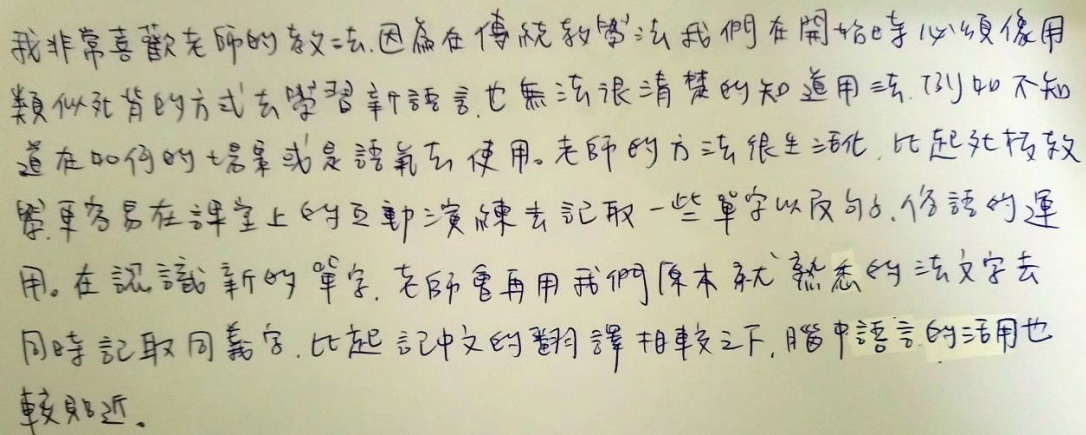 我非常喜歡老師的教法.因為在傳統教學法我們在開始時必須像用
類似死背的方式去學習新語言.也無法很清楚的知道用法.例如不知
道在如何的場景或是語氣去使用。老師的方法很生活化.比起死板教
學.更容易在課堂上的互動演練去記取一些單字以及句子.俗語的運
用。在認識新的單字.老師會再用我們原本就熟悉的法文字去
同時記取同義字.比起記中文的翻譯相較之下.腦中語言的活用也
較貼近。